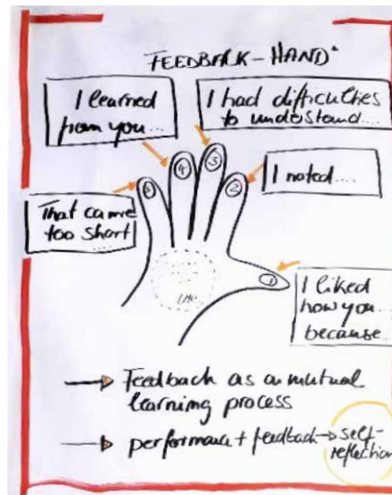 FEEDBACK-HAND
I learned
from you...
I had difficulties
to understand...
4
3
2
I noted....
That came
too short
1
I liked
how you...
because...
Feedback as a mutual
learning process
performance + feedback → self-
reflection